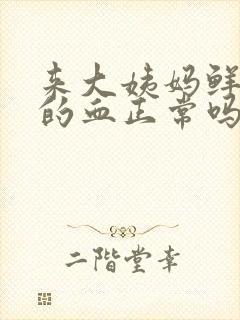 来大姨妈鲜
的血正常吗
二階堂幸